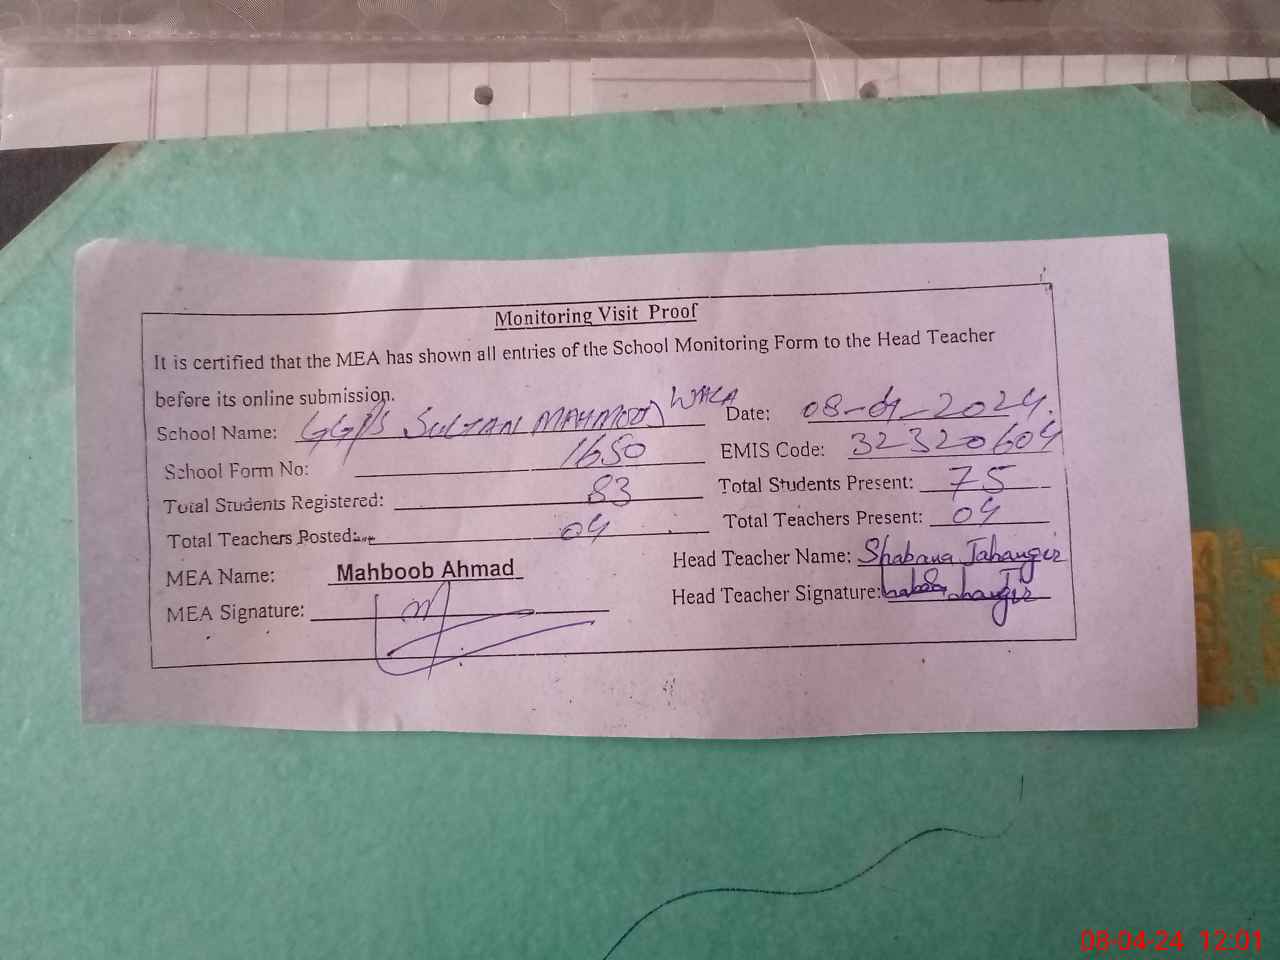 Monitoring Visit Proof
It is certified that the MEA has shown all entries of the School Monitoring Form to the Head Teacher
before its online submission.
School Name: GGPS SULTAN MAHMOOD WALA Date: 08-04-2024.
School Form No: 1650 EMIS Code: 32320604
Total Students Registered: 83 Total Students Present: 75
Total Teachers Posted: 04 Total Teachers Present: 04
MEA Name: Mahboob Ahmad Head Teacher Name: Shabana Jahangir
MEA Signature: Head Teacher Signature: Shabana Jahangir
08-04-24 12:01